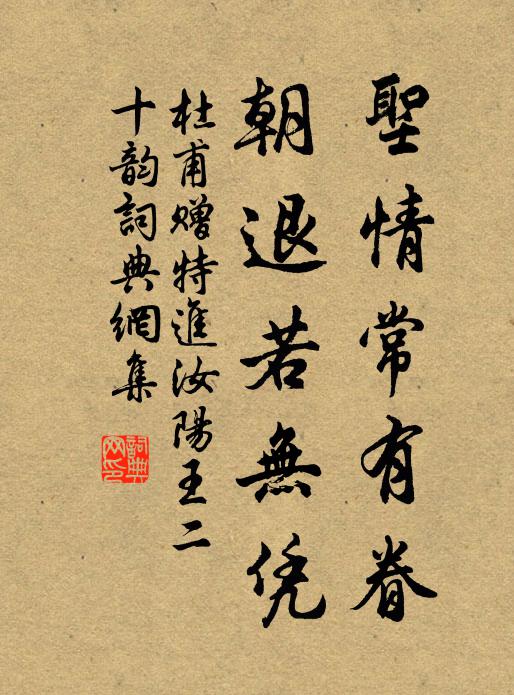 聖情常有眷
朝退若無凭
杜甫赠特進汝陽王二
十韵詞典網集
詞典网印